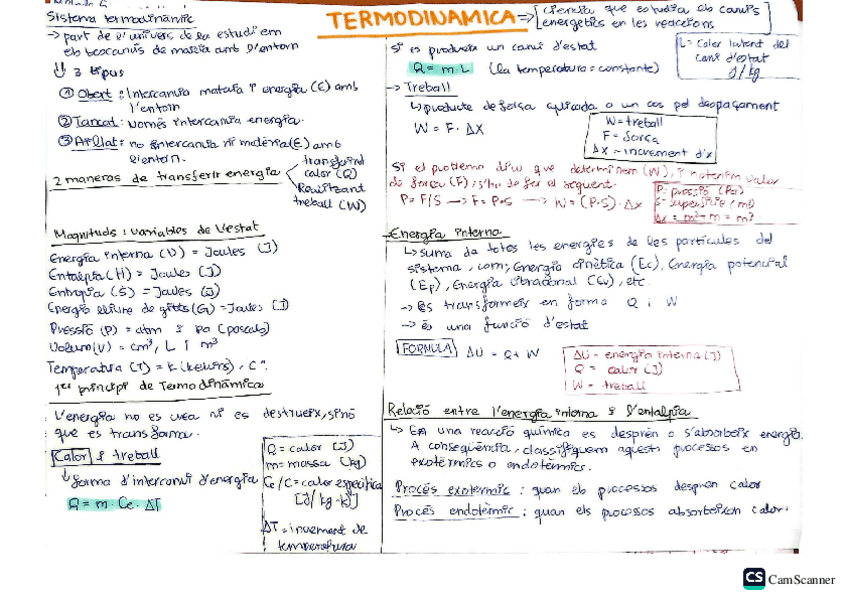 TERMODINAMICA → ciència que estudia els canvis
energetics en les reaccions
Sistema termodinàmic
→ part de l'univers de sa estudi em
els bescanvis de matèria amb l'entorn
3 tipus
① Obert: Intercanvia matèria i energia (E) amb
l'entorn
② Tancat: només intercanvia energia.
③ Aïllat: no intercanvia ni matèria (E) amb
l'entorn.
2 maneres de transferir energia
transferint
calor (Q)
Realitzant
treball (W)
Magnituds i variables de l'estat
Energia interna (U) = Joules (J)
Entalpia (H) = Joules (J)
Entropia (S) = Joules (J)
Energia lliure de gibbs (G) = Joules (J)
Pressió (P) = atm i Pa (pascals)
Volum (V) = cm³, L i m³
Temperatura (T) = K (kelvins), Cº.
1er principi de Termodinàmica
L'energia no es crea ni es destrueix, sinó
que es transforma.
Calor i treball
forma d'intercanvi d'energia
Q = m · Ce · ΔT
Q = calor (J)
m = massa (kg)
Ce/C = calor especifica
[J/kg·k]
ΔT = increment de
temperatura
Si es produeix un canvi d'estat
Q = m·L (la temperatura = constante)
L = Calor latent del
canvi d'estat
J/kg
→ Treball
↳ producte de força aplicada a un cos pel desplaçament
W = F · ΔX
W = treball
F = força
ΔX = increment d'x
Si el problema diu que determinem (W), i no tenim valor
de força (F), s'ha de fer el següent.
P = F/S → F = P·S → W = (P·S) · Δx
P = pressió (Pa)
S = superficie (m²)
Δx = m² - m = m³
Energia interna
↳ suma de totes les energies de les particules del
sistema, com; Energia cinètica (Ec), Energia potencial
(Ep), Energia vibracional (Ev), etc.
→ es transformeix en forma Q i W
→ és una funció d'estat
FORMULA ΔU = Q + W
ΔU = energia interna (J)
Q = calor (J)
W = treball
Relació entre l'energia interna i l'entalpia
↳ En una reacció química es desprèn o s'absorbeix energia.
A conseqüència, classifiquem aquests processos en
exotèrmics o endotèrmics.
Procés exotèrmic: quan els processos desprèn calor
Procés endotèrmic: quan els processos absorbeixen calor.
CS CamScanner